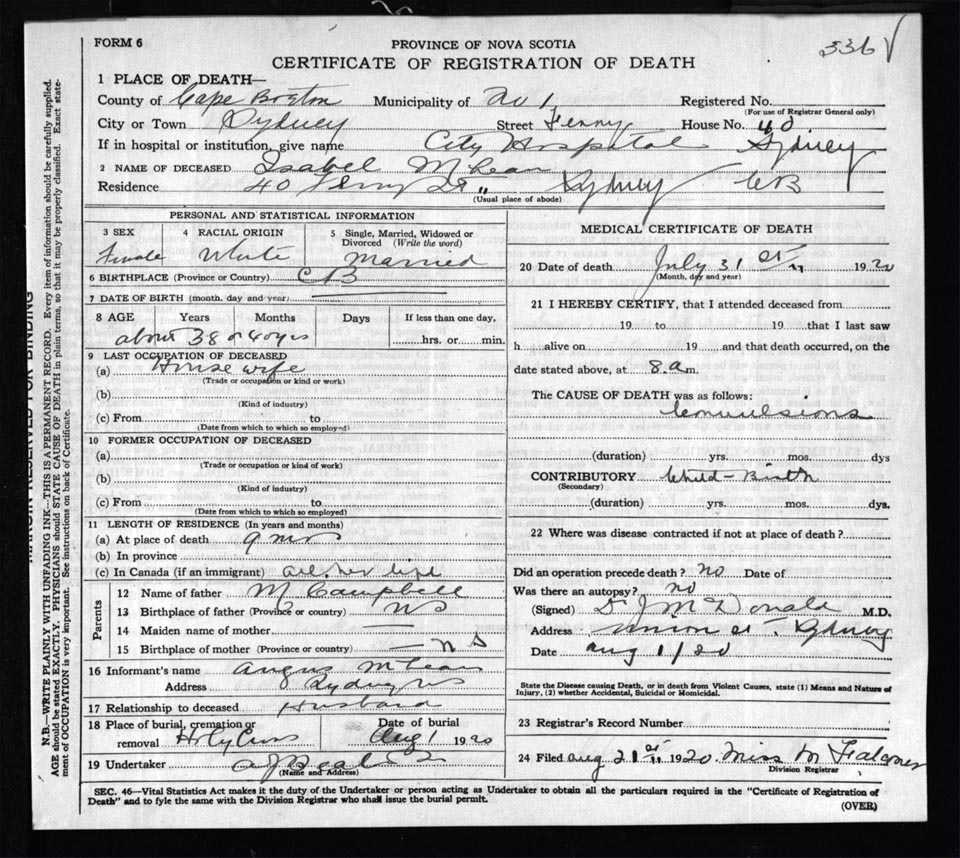 FORM 6
PROVINCE OF NOVA SCOTIA
336
CERTIFICATE OF REGISTRATION OF DEATH
1 PLACE OF DEATH—
County of Cape Breton Municipality of No 1 Registered No.
(For use of Registrar General only)
City or Town Sydney Street Ferry House No. 40
If in hospital or institution, give name City Hospital Sydney
2 NAME OF DECEASED Isabel McLean
Residence 40 Ferry St " Sydney CB
(Usual place of abode)
PERSONAL AND STATISTICAL INFORMATION
3 SEX 4 RACIAL ORIGIN 5 Single, Married, Widowed or Divorced (Write the word)
Female White Married
6 BIRTHPLACE (Province or Country) CB
7 DATE OF BIRTH (month, day and year)
8 AGE Years Months Days If less than one day,
about 38 or 40 yrs hrs. or min.
9 LAST OCCUPATION OF DECEASED
(a) House wife
(Trade or occupation or kind or work)
(b)
(Kind of industry)
(c) From to
(Date from which to which so employed)
10 FORMER OCCUPATION OF DECEASED
(a)
(Trade or occupation or kind of work)
(b)
(Kind of industry)
(c) From to
(Date from which to which so employed)
11 LENGTH OF RESIDENCE (In years and months)
(a) At place of death 9 mos
(b) In province
(c) In Canada (if an immigrant) all her life
Parents
12 Name of father M Campbell
13 Birthplace of father (Province or country) NS
14 Maiden name of mother —
15 Birthplace of mother (Province or country) — N S
16 Informant's name Angus McLean
Address Sydney NS
17 Relationship to deceased Husband
18 Place of burial, cremation or removal Holy Cross Date of burial Aug 1 1920
19 Undertaker
(Name and Address)
MEDICAL CERTIFICATE OF DEATH
20 Date of death July 31st 1920
(Month, day and year)
21 I HEREBY CERTIFY, that I attended deceased from
19 to 19 that I last saw
h alive on 19 and that death occurred, on the
date stated above, at 8 a.m.
The CAUSE OF DEATH was as follows:
Convulsions
(duration) yrs. mos. dys
CONTRIBUTORY Child-Birth
(Secondary)
(duration) yrs. mos. dys.
22 Where was disease contracted if not at place of death?
Did an operation precede death? No Date of
Was there an autopsy? no
(Signed) D J McDonald M.D.
Address Union St. Sydney
Date Aug 1/20
State the Disease causing Death, or in death from Violent Causes, state (1) Means and Nature of
Injury, (2) whether Accidental, Suicidal or Homicidal.
23 Registrar's Record Number
24 Filed Aug 21st 1920 Miss M Falconer
Division Registrar
SEC. 46—Vital Statistics Act makes it the duty of the Undertaker or person acting as Undertaker to obtain all the particulars required in the "Certificate of Registration of
Death" and to fyle the same with the Division Registrar who shall issue the burial permit.
(OVER)
MARGIN RESERVED FOR BINDING
N.B.—WRITE PLAINLY WITH UNFADING INK—THIS IS A PERMANENT RECORD. Every item of information should be carefully supplied.
AGE should be stated EXACTLY. PHYSICIANS should STATE CAUSE OF DEATH in plain terms, so that it may be properly classified. Exact state-
ment of OCCUPATION is very important. See instructions on back of Certificate.